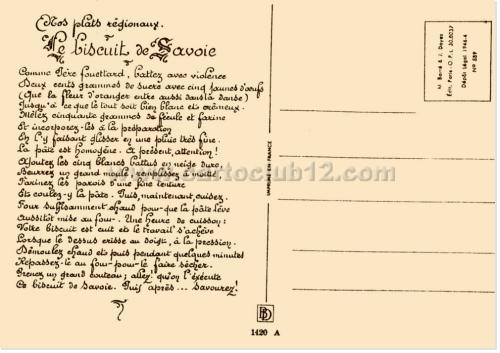 Nos plats régionaux.
Le biscuit de Savoie
Comme Père fouettard, battez avec violence
Deux cents grammes de sucre avec cinq jaunes d'œufs
(Que la fleur d'oranger entre aussi dans la danse)
Jusqu'à ce que le tout soit bien blanc et crémeux.
Mêlez cinquante grammes de fécule et farine
Et incorporez-les à la préparation
En l'y faisant glisser en une pluie très fine.
La pâte est homogène. A présent, attention!
Ajoutez les cinq blancs battus en neige dure,
Beurrez un grand moule, remplissez à moitié
Farinez les parois d'une fine teinture
Et coulez-y la pâte. Puis, maintenant, cuisez.
Four suffisamment chaud pour que la pâte lève
Aussitôt mise au four. Une heure de cuisson:
Notre biscuit est cuit et le travail s'achève
Lorsque le dessus crisse au doigt, à la pression.
Démoulez chaud et puis pendant quelques minutes
Repassez-le au four pour le faire sécher.
Prenez un grand couteau; allez! qu'on l'exécute
Ce biscuit de Savoie. Puis après... Savourez!
IMPRIMÉ EN FRANCE
M. Barré & J. Dayez
Édit. Paris - O.P.I. 30.8027
Dépôt Légal 1946-4
Nº 889
www.cartoclub12.com
BD
1420 A